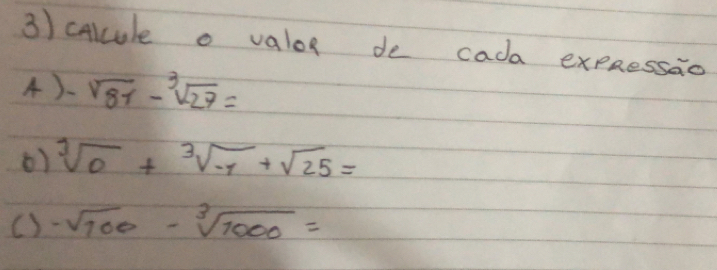 3) CALCULE O VALOR DE CADA EXPRESSÃO
A) -√81 - ³√27 =
b) ⁷√0 + ³√-1 + √25 =
C) -√100 - ³√1000 =